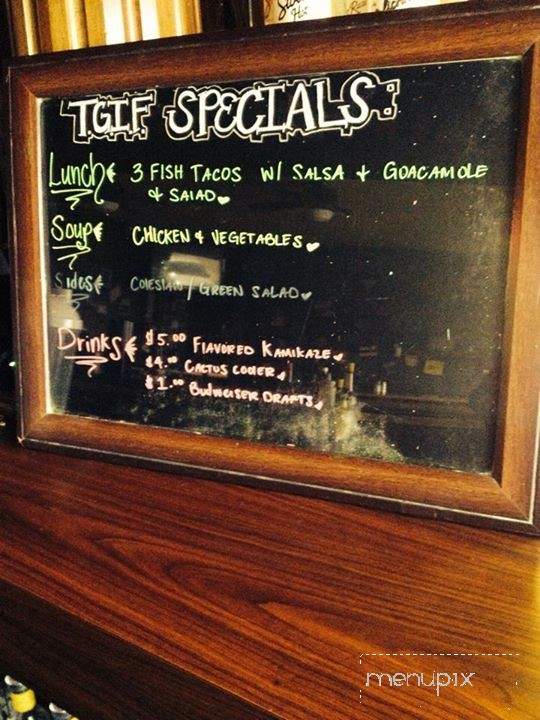 TGIF SPECIALS:
Lunch 3 FISH TACOS W/ SALSA + GOACAMOLE
+ SALAD
Soup CHICKEN + VEGETABLES
Sides COLESLAW / GREEN SALAD
Drinks $5.00 FLAVORED KAMIKAZE
$4.00 CACTUS COOLER
$1.00 BUDWEISER DRAFTS
menupix